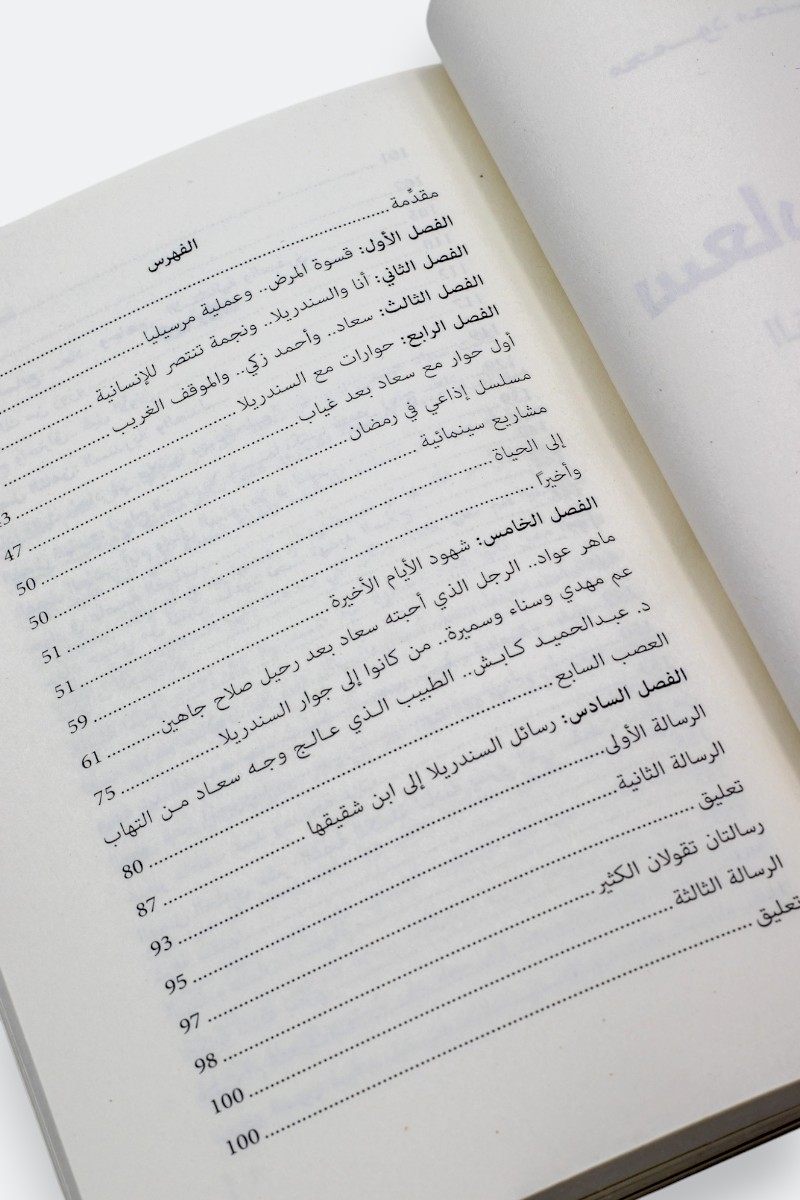 الفهرس
مقدِّمة
الفصل الأول: قسوة المرض.. وعملية مرسيليا
الفصل الثاني: أنا والسندريلا.. ونجمة تنتصر للإنسانية
الفصل الثالث: سعاد.. وأحمد زكي.. والموقف الغريب
الفصل الرابع: حوارات مع السندريلا
أول حوار مع سعاد بعد غياب 47
مسلسل إذاعي في رمضان 50
مشاريع سينمائية 50
إلى الحياة 51
وأخيرًا 51
الفصل الخامس: شهود الأيام الأخيرة 59
ماهر عواد.. الرجل الذي أحبته سعاد بعد رحيل صلاح جاهين 61
عم مهدي وسناء وسميرة.. من كانوا إلى جوار السندريلا 75
د. عبدالحميد كابش.. الطبيب الذي عالج وجه سعاد من التهاب
العصب السابع 80
الفصل السادس: رسائل السندريلا إلى ابن شقيقها 87
الرسالة الأولى 93
الرسالة الثانية 95
تعليق 97
رسالتان تقولان الكثير 98
الرسالة الثالثة 100
تعليق 100